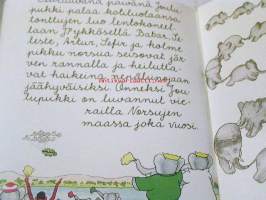 Seuraavana päivänä Joulu
pukki palaa kotiluolaansa
tonttujen luo lentokoneel
laan Jyhkösellä. Babar, Ce
leste, Artur, Zefir ja kolme
pikku norsua seisovat jär
ven rannalla ja heilutta
vat haikeina nenäliinojaan
jäähyväisiksi. Onneksi Jou
lupukki on luvannut vie
railla Norsujen
maassa joka vuosi.